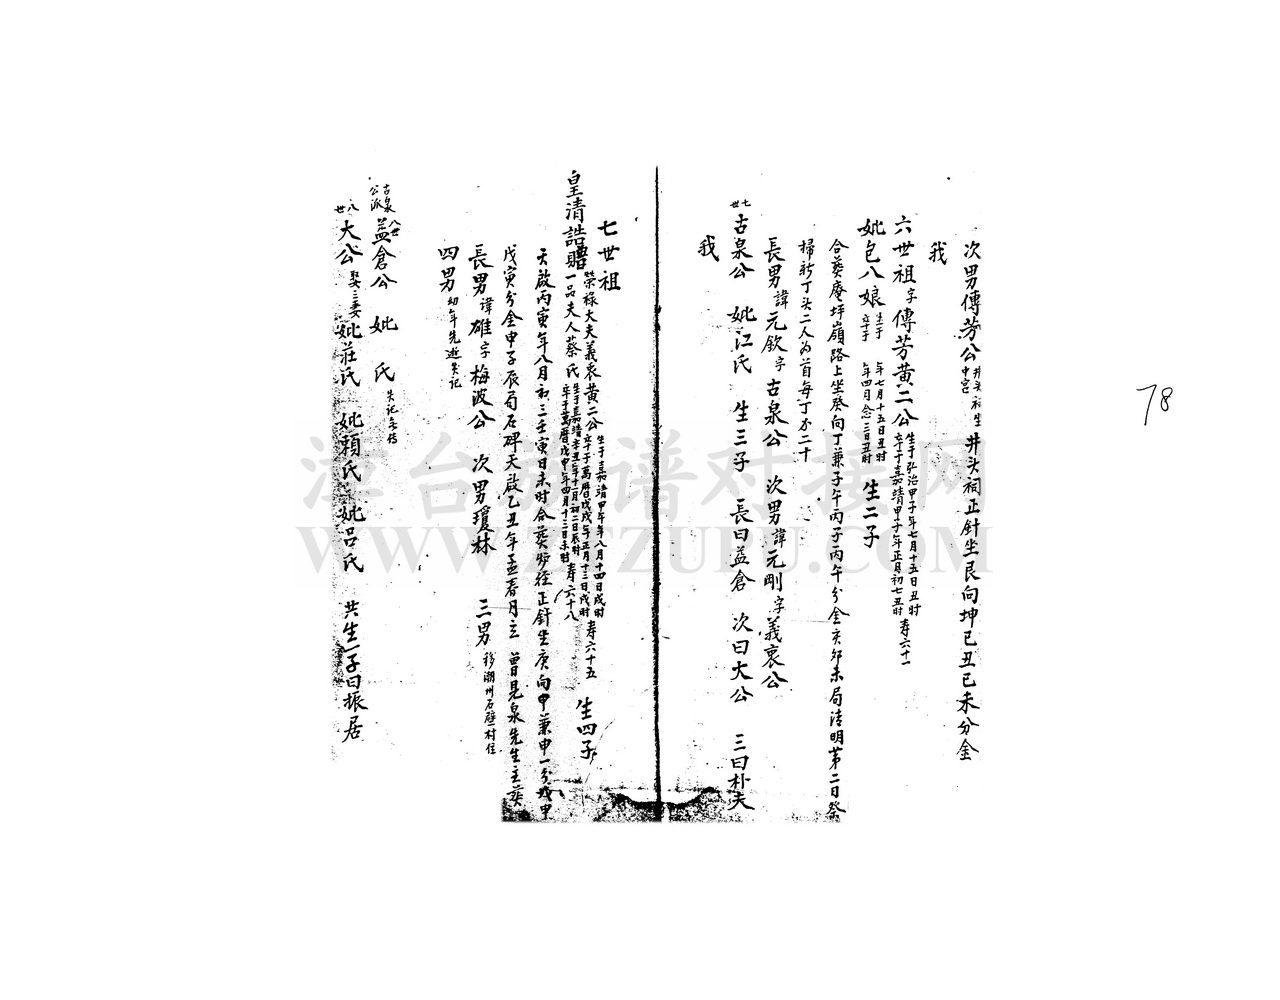 次男傳芳公井头祠生中宮 井头祠正針坐艮向坤己丑己未分金
我
六世祖字傳芳黄二公生于弘治甲子年七月十五日丑时卒于嘉靖甲子年正月初七丑时 寿六十一
妣包八娘生于 年七月十五日丑时卒于 年四月念三日丑时 生二子
合葬庵坪嶺路上坐癸向丁兼子午丙子丙午分金亥卯未局清明第二日祭
掃新丁头二人为首每丁不二十
長男諱元欽字古泉公 次男諱元剛字義衷公
七世古泉公 妣江氏 生三子 長曰益倉 次曰大公 三曰朴夫
我
七世祖
皇清誥贈榮祿大夫義衷黄二公生于嘉靖甲午年八月十四日戌时卒于萬曆戊戌年正月十三日戌时 寿六十五 生四子
一品夫人蔡氏生于嘉靖辛丑年十一月初二日辰时卒于萬曆戊申年四月十二日未时 寿六十八
天啟丙寅年八月初三壬寅日未时合葬 徑正針坐庚向甲兼申一分戊申
戊寅分金申子辰局石碑天啟乙丑年孟春月立 曾見泉先生主葬
長男諱雄字梅波公 次男瓊林 三男移潮州石壁村住
四男幼年先逝失记
古泉公派八世益倉公 妣 氏失记失传
八世大公娶三妻妣莊氏 妣賴氏 妣呂氏 共生一子曰振居
78
WWW.ZTZUPU.COM